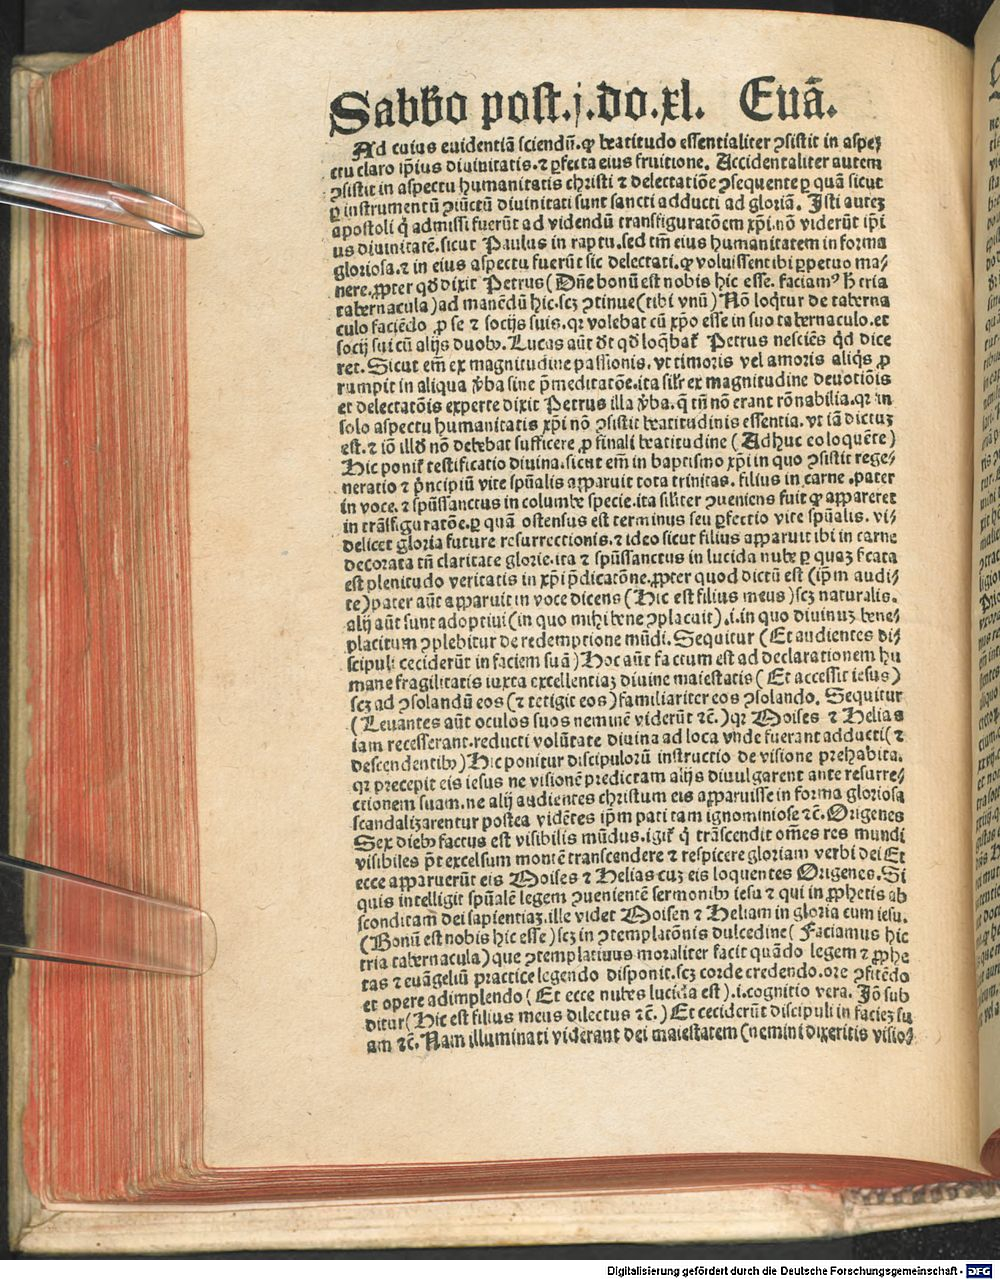 Sabbo post.j.do.xl. Euā.
Ad cuius euidentiā sciendū.ꝙ beatitudo essentialiter ꝯsistit in aspe⸗
ctu claro ip̄ius diuinitatis.⁊ ꝑfecta eius fruitione. Accidentaliter autem
ꝯsistit in aspectu humanitatis christi ⁊ delectatiōe ꝯsequente ꝑ quā sicut
ꝑ instrumentū ꝯiūctū diuinitati sunt sancti adducti ad gloriā. Isti auteꝫ
apostoli q̇ admissi fuerūt ad videndū transfiguratōem xp̄i.nō viderūt ip̄i
us diuinitatē.sicut Paulus in raptu.sed tm̄ eius humanitatem in forma
gloriosa.⁊ in eius aspectu fuerūt sic delectati.ꝙ voluissent ibi ꝑpetuo ma⸗
nere.ꝓpter qd̄ dixit Petrus(Dn̄e bonū est nobis hic esse. faciamꝰ h̄ tria
tabernacula)ad manēdū hic.scꝫ ꝯtinue(tibi vnū)Nō loq̇tur de taberna
culo faciēdo ꝓ se ⁊ socijs suis.qꝛ volebat cū xp̄o esse in suo tabernaculo.et
socij sui cū alijs duobꝰ. Lucas aūt dt̄ qd̄ loq̄bat᷑ Petrus nesciēs q̇d dice
ret. Sicut em̄ ex magnitudine passionis.vt timoris vel amoris aliq̇s ꝓ
rumpit in aliqua v̄ba sine p̄meditatōe.ita silr̄ ex magnitudine deuotiōis
et delectatōis experte dixit Petrus illa v̄ba.q̄ tn̄ nō erant rōnabilia.qꝛ in
solo aspectu humanitatis xp̄i nō ꝯsistit beatitudinis essentia.vt iā dictuꝫ
est.⁊ iō illd̄ nō debebat sufficere ꝓ finali beatitudine(Adhuc eo loquēte)
Hic ponit᷑ testificatio diuina.sicut em̄ in baptismo xp̄i in quo ꝯsistit rege⸗
neratio ⁊ ṗncipiū vite spūalis apparuit tota trinitas. filius in carne.pater
in voce.⁊ spūssanctus in columbe specie.ita siliter ꝯueniens fuit ꝙ appareret
in trāsfiguratōe.ꝑ quā ostensus est terminus seu ꝑfectio vite spūalis. vi⸗
delicet gloria future resurrectionis.⁊ ideo sicut filius apparuit ibi in carne
decorata tn̄ claritate glorie.ita ⁊ spūssanctus in lucida nube ꝑ quaꝫ s̄cata
est plenitudo veritatis in xp̄i p̄dicatōne.ꝓpter quod dictū est(ip̄m audi⸗
te)pater aūt apparuit in voce dicens(Hic est filius meus)scꝫ naturalis.
alij aūt sunt adoptiui(in quo mihi bene ꝯplacuit).i.in quo diuinuꝫ bene⸗
placitum ꝯplebitur de redemptione mūdi. Sequitur(Et audientes di⸗
scipuli ceciderūt in faciem suā)Hoc aūt factum est ad declarationem hu
mane fragilitatis iuxta excellentiaꝫ diuine maiestatis(Et accessit iesus)
scꝫ ad ꝯsolandū eos(⁊ tetigit eos)familiariter eos ꝯsolando. Sequitur
(Leuantes aūt oculos suos neminē viderūt ⁊c̄.)qꝛ Moises ⁊ Helias
iam recesserant.reducti volūtate diuina ad loca vnde fuerant adducti(⁊
descendentibꝰ)Hic ponitur discipulorū instructio de visione prehabita.
qꝛ precepit eis iesus ne visionē predictam alijs diuulgarent ante resurre⸗
ctionem suam.ne alij audientes christum eis apparuisse in forma gloriosa
scandalizarentur postea vidētes ip̄m pati tam ignominiose ⁊c̄. Origenes
Sex diebꝰ factus est visibilis mūdus.igit᷑ q̇ trāscendit om̄es res mundi
visibiles p̄t excelsum montē transcendere ⁊ respicere gloriam verbi dei Et
ecce apparuerūt eis Moises ⁊ Helias cuꝫ eis loquentes Origenes. Si
quis intelligit spūalē legem ꝯuenientē sermonibꝰ iesu ⁊ qui in ꝓphetis ab
sconditam dei sapientiaꝫ.ille videt Moisen ⁊ Heliam in gloria cum iesu.
(Bonū est nobis hic esse)scꝫ in ꝯtemplatōnis dulcedine(Faciamus hic
tria tabernacula)que ꝯtemplatiuus moraliter facit quādo legem ⁊ ꝓphe
tas ⁊ euāgeliū practice legendo disponit.scꝫ corde credendo.ore ꝯfitēdo
et opere adimplendo(Et ecce nubes lucida est).i.cognitio vera. Iō sub
ditur(Hic est filius meus dilectus ⁊c̄.)Et ceciderūt discipuli in facieꝫ su
am ⁊c̄. Nam illuminati viderant dei maiestatem(nemini dixeritis visio⸗
Digitalisierung gefördert durch die Deutsche Forschungsgemeinschaft - DFG